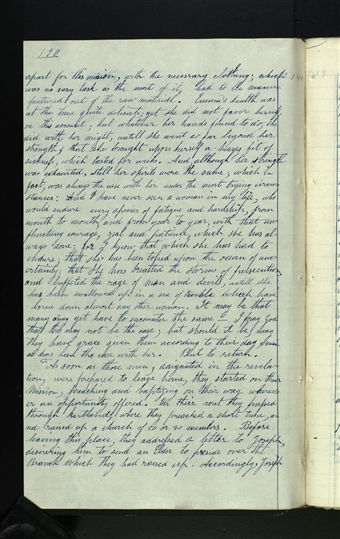 190
apart for this mission, with the necessary clothing; which
was no easy task as the most of it, had to be manu
factured out of the raw material. Emma's health was
at this time quite delicate, yet she did not favor herself
on this account; but whatever her hands found to do, she
did with her might; untill she went so far beyond her
strength that she brought upon herself a heavy fit of
sickness, which lasted four weeks. And although her strength
was exhausted, still her spirits were the same; which in
fact, was always the case with her under the most trying circum
stances. And I have never seen a woman in my life, who
would endure every species of fatigue and hardship, from
month to month and from year to year, with that un
flinching courage, zeal and patience, which she has al-
ways done; for I know that which she has had to
endure; that she has been tossed upon the ocean of uncer-
tainty; that she has breasted the storms of persecution
and buffeted the rage of men and devils, untill she
has been swallowed up in a sea of trouble which have
borne down almost any other woman. It may be that
many may yet have to encounter the same— I pray God
that this may not be the case; but should it be, may
they have grace given them according to their day, even
as has been the case with her. But to return.
As soon as those men, designated in the revela-
tion, were prepared to leave home, they started on their
mission, preaching and baptizing on their way wherev-
er an opportunity offered. On their rout they passed
through Kirtland, where they preached a short time, a-
nd raised up a church of 20 or 30 members. Before
leaving this place, they addressed a letter to Joseph,
desireing him to send an Elder to preside over the
Branch which they had raised up. Accordingly, Joseph